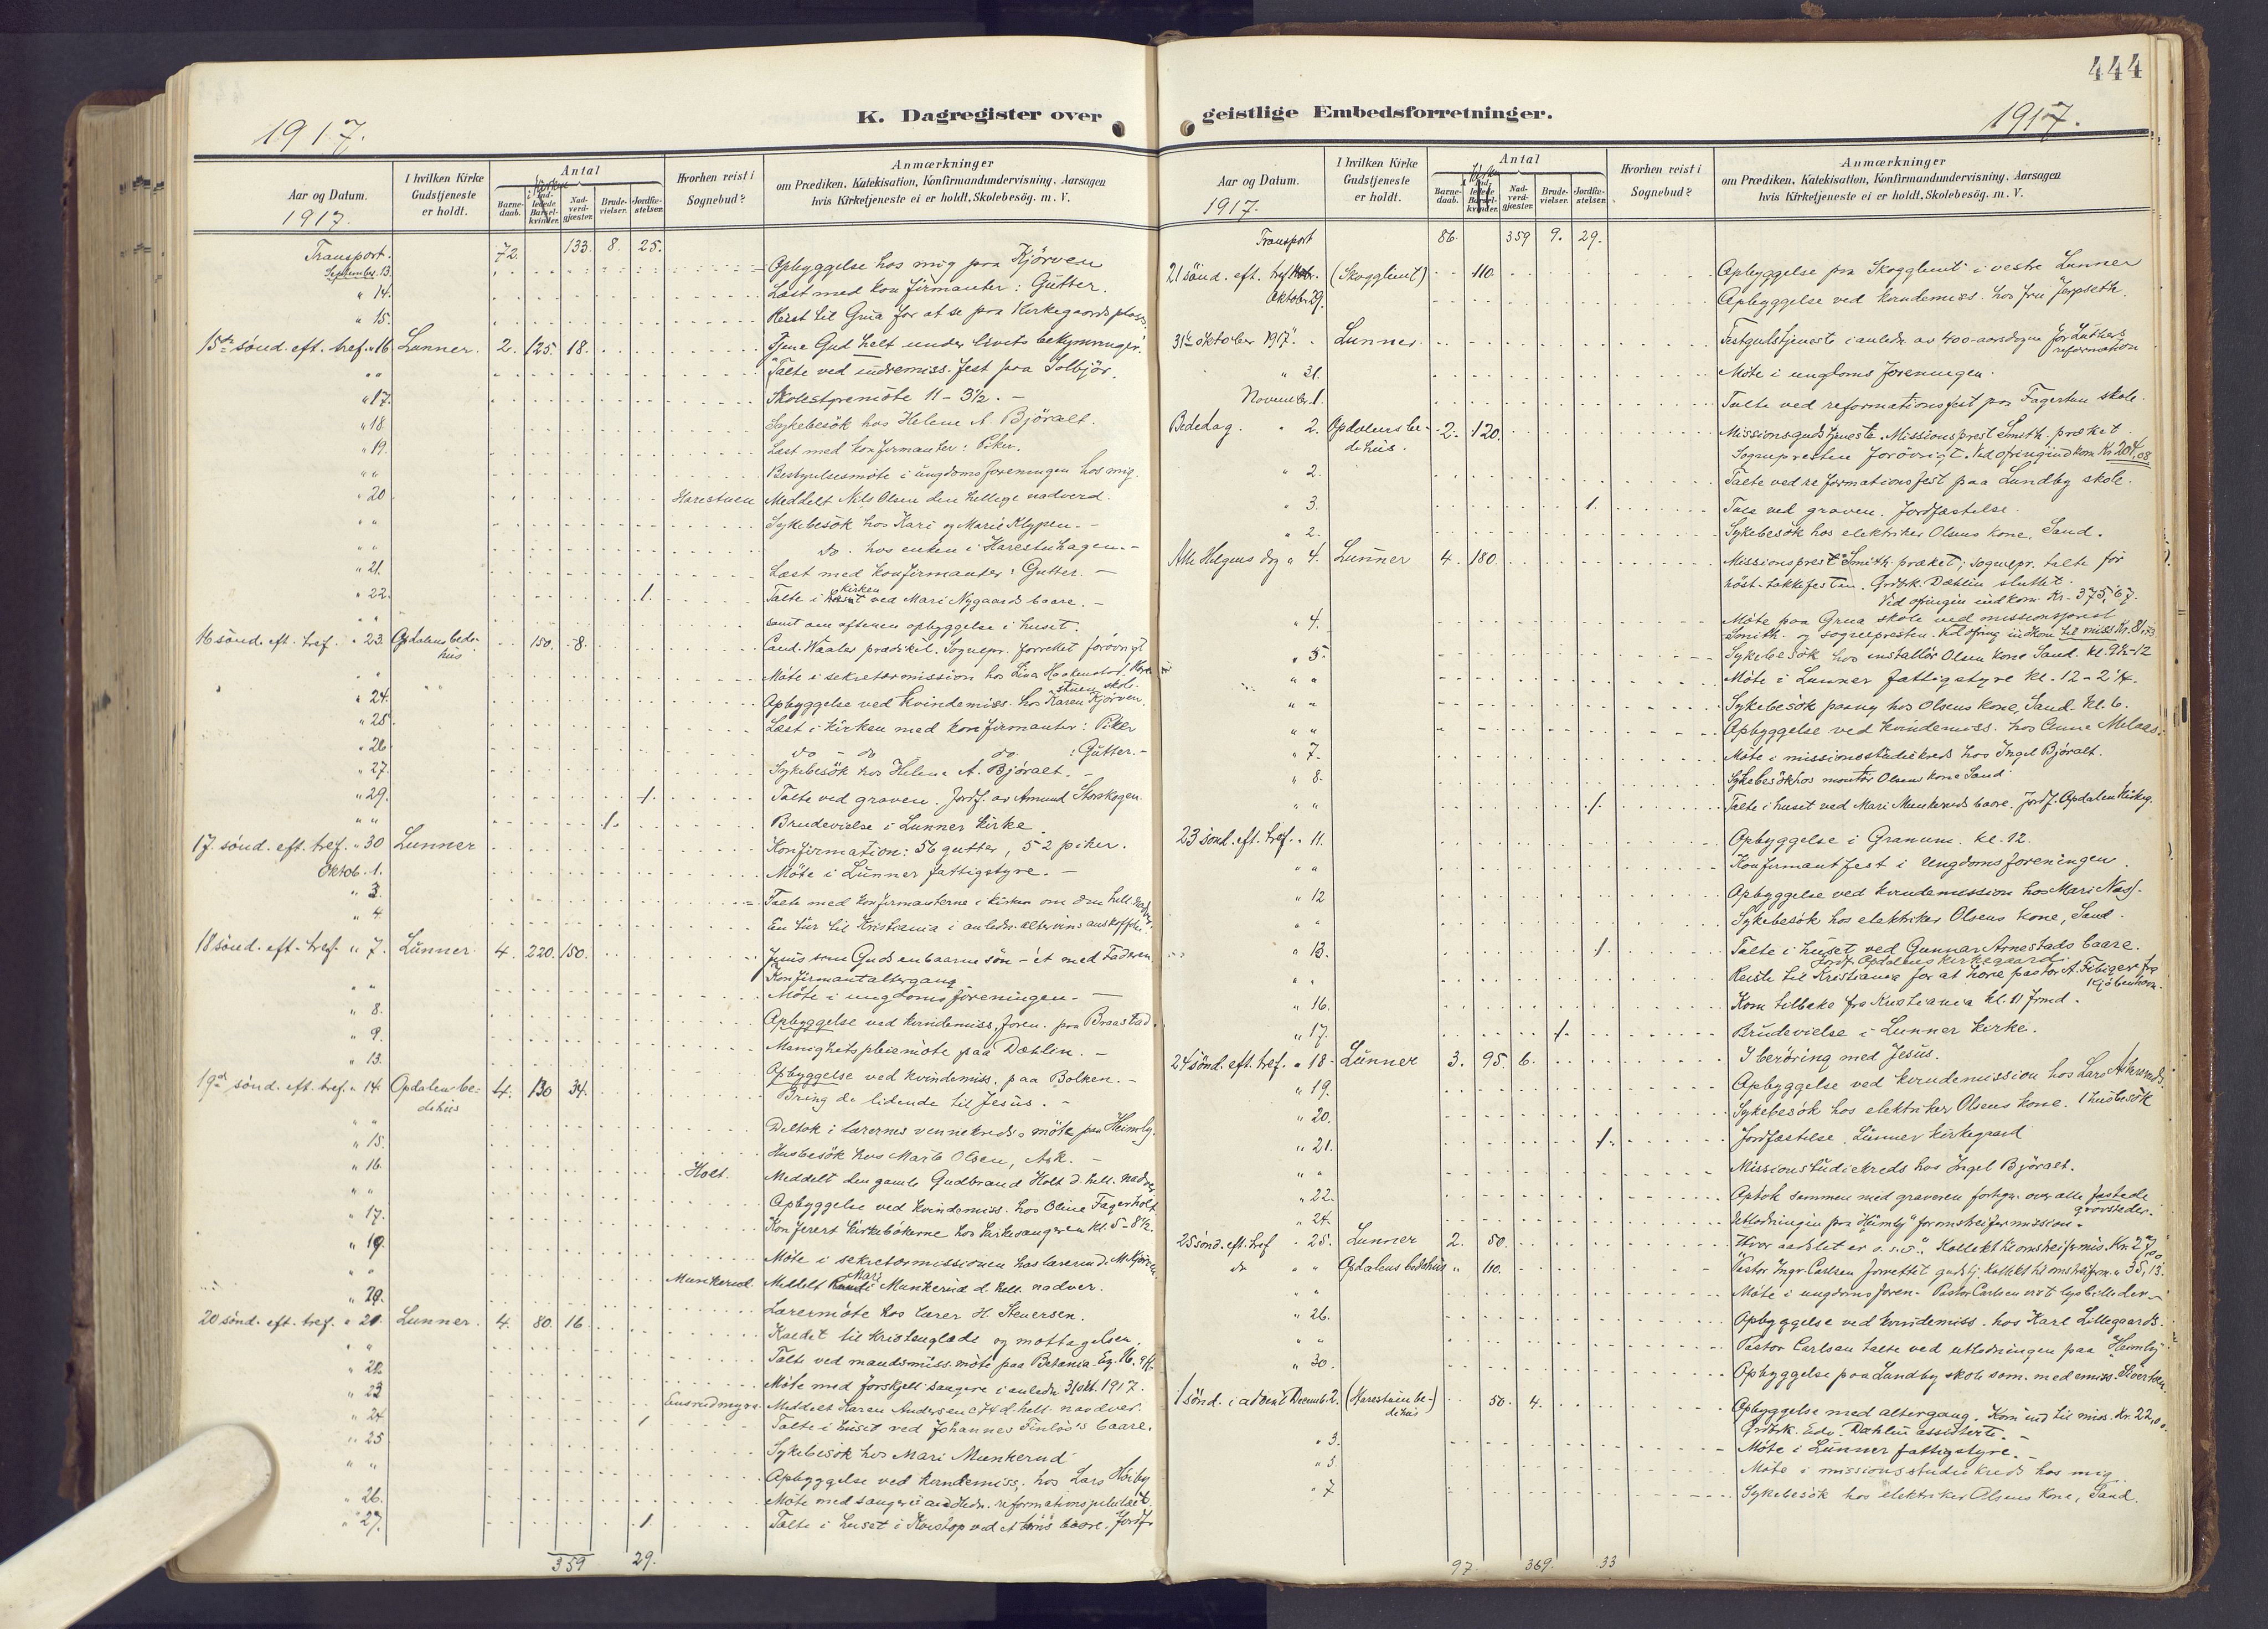 444
K. Dagregister over geistlige Embedsforretninger.
1917.
1917.
Aar og Datum.
1917.
I hvilken Kirke Gudstjeneste er holdt.
Antal
Barne-daab.
Nad-verd-gjæster.
Brude-vielser.
Jordfæ-stelser.
Hvorhen reist i Sognebud?
Anmærkninger
om Prædiken, Katekisation, Konfirmandundervisning, Aarsagen
hvis Kirketjeneste ei er holdt, Skolebesög. m. V.
Transport. 72. 133. 8. 25.
September 13. Opbyggelse hos mig paa Kjörven
" 14. Læst med konfirmanter: Gutter.
" 15. Reist til Grua for at se paa Kirkegaards plass.
15de sönd. eft. tref. " 16 Lunner. 2. 125. 18. Tjene Gud helt under livets bekymringer.
" " Talte ved indremiss. fest paa Solbjör.
" 17. Skolestyremöte 11 - 3½. -
" 18 Sykebesök hos Helene A. Björalt.
" 19. Læst med konfirmanter: Piker.
" " Bestyrelsesmöte i ungdomsforeningen hos mig.
" 20 Harestuen Meddelt Nils Olsen den hellige nadverd.
" " Sykebesök hos Kari og Marie Klypen. -
" " do. hos enken i Harestuhagen. -
" 21. Læst med konfirmanter: Gutter. -
" 22. 1. Talte i kirken ved Mari Nygaards baare. -
" " samt om aftenen opbyggelse i huset.
16 sönd. eft. tref. " 23 Opdalens bede-hus 150. 8. Cand. Waaler prædiket. Sognepr. forrettet forövrigt
Möte i sekretærmission hos Lina Haakenstad. Hare-stuen skole.
" 24. Opbyggelse ved Kvindemiss. hos Karen Kjörven.
" 25 Læst i Kirken med konfirmanter: Piker
" 26 do - do do : Gutter. -
" 27. Sykebesök hos Helene A. Björalt. -
" 29. 1. Talte ved graven. Jordf. av Amund Storskogen.
" " 1. Brudevielse i Lunner kirke.
17. sönd. eft. tref. " 30 Lunner Konfirmation: 56 gutter, 52 piker.
Oktob. 1. Möte i Lunner fattigstyre. -
" 3. Talte med konfirmanterne i kirken om den hell. nadver.
" 4 En tur til Kristiania i anledn. altervins anskaffelse.
18 sönd. eft. tref. " 7. Lunner. 4. 220. 150. Jesus som Guds enbaarne sön - ét med Faderen
Konfirmantaltergang
" " Möte i ungdomsforeningen. -
" 8. Opbyggelse ved kvindemiss. foren. paa Braastad.
" 9. Menighetspleiemöte paa Dæhlin. -
" 13. Opbyggelse ved kvindemiss. paa Bolken. -
19de sönd. eft. tref. " 14 Opdalen be-dehus 4. 130 34. Bring de lidende til Jesus. -
" " Deltok i lærernes vennekreds möte paa Heimly.
" 15. Husbesök hos Marte Olsen, Ask. -
" 16. Holt. Meddelt den gamle Gudbrand Holt d. hell. nadver.
" " Opbyggelse ved kvindemiss. hos Oline Fagerholt
" 17. Konferert kirkebökerne hos kirkesangeren kl. 5 - 8½.
" 19. Möte i sekretærmissionen hos lærerinde M. Kjörven.
" " Munkerud Meddelt Mari Munkerud d. hell. nadver.
" 20. Lærermöte hos lærer H. Steuersen.
20 sönd. eft. tref. " 21. Lunner. 4. 80. 16. Kaldet til kristenglæde og mottagelsen.
" " Talte ved mandsmiss. möte paa Betania.
" 22. Möte med forskjell. sangere i anledn. 31 okt. 1917.
" 23 Ensrudmyra. Meddelt Karen Andersen d. hell. nadver.
" 24 1 Talte i huset ved Johannes Finlös's baare.
" 25 Sykebesök hos Mari Munkerud
" " Opbyggelse ved kvindemiss. hos Lars Höiby
" 26. Möte med sangere i anledn. reformationsjubilæet.
" 27. 1. Talte i huset i ved et barns baare. Jordf.
359 29.
Aar og Datum.
1917.
I hvilken Kirke Gudstjeneste er holdt.
Antal
Barne-daab.
Nad-verd-gjæster.
Brude-vielser.
Jordfæ-stelser.
Hvorhen reist i Sognebud?
Anmærkninger
om Prædiken, Katekisation, Konfirmandundervisning, Aarsagen
hvis Kirketjeneste ei er holdt, Skolebesög. m. V.
Transport 86. 359 9. 29.
21 sönd. eft. tref. (Skogglimt) 110. Opbyggelse paa Skogglimt i vestre Lunner
Oktober 29. Opbyggelse ved kvindemiss. hos fru Jorpseth.
31te oktober 1917. Lunner. Festgudstjeneste i anledn. av 400-aarsdagen for Luthers reformation
" 31. Möte i ungdomsforeningen.
November 1. Talte ved reformationsfest paa Fagertun skole.
Bededag. " 2. Opdalens be-dehus. 2. 120. Missionsgudstjeneste. Missionsprest Smith præket.
Sognepresten forövrigt. Ved ofring indkom Kr. 204,08
" 2. Talte ved reformationsfest paa Lundby skole.
" 3. 1. Tale ved graven. Jordfæstelse.
" 2. Sykebesök hos elektriker Olsens kone, Sand.
Alle Helgens dag " 4. Lunner 4. 180. Missionsprest Smith præket; sognepr. talte for
höst-takkefesten. Grdbr. Dæhlin sluttet.
Ved ofringen indkom Kr. 375,67.
" 4. Möte paa Grua skole ved missionsprest
Smith og sognepresten. Ved ofring indkom til miss. Kr.
" 5. Sykebesök hos installör Olsens kone Sand. kl. 9½-12
" " Möte i Lunner fattigstyre kl. 12 - 2¼.
" " Sykebesök paany hos Olsens kone, Sand kl. 6.
" " Opbyggelse ved kvindemiss. hos Anne Melaas.
" 7. Möte i missionsstudiekreds hos Ingel Björalt.
" 8. Sykebesök hos montör Olsens kone Sand
" " 1. Talte i huset ved Mari Munkeruds baare. Jordf. Opdalen Kirkeg.
23 sönd. eft. tref. " 11. Opbyggelse i Granum. kl. 12.
" " Konfirmantfest i Ungdomsforeningen.
" 12 Opbyggelse ved kvindemission hos Mari Næs.
" Sykebesök hos elektriker Olsens kone, Sand.
" 13. 1. Talte i huset ved Gunnar Arnestads baare.
Jordf. Opdalens kirkegaard.
" " Reiste til Kristiania for at höre pastor A. Fibiger fra Kjöbenhavn.
" 16. Kom tilbake fra Kristiania kl. 11 frmd.
" 17. 1. Brudevielse i Lunner kirke.
24 sönd. eft. tref. " 18 Lunner 3. 95. 6. I beröring med Jesus.
" 19. Opbyggelse ved kvindemission hos Lars
" 20. Sykebesök hos elektriker Olsens kone. 1 husbesök
" 21. 1. Jordfæstelse. Lunner kirkegaard
" " Missionstudiekreds hos Ingel Björalt.
" 22. Optok sammen med graveren fortegn. over alle fæstede gravsteder.
" 24. Utlodningen paa "Heimly" for omstreifermission.
25 sönd. eft. tref " 25. Lunner 2. 50. Hvor aadslet er o.s.v. Kollekt til omstreiferm. Kr. 27,00
do " " Opdalens bedehus " 110. Pastor Ingv. Carlsen forrettet gudstj. kollekt til omstreiferm. " 35,13.
" " Möte i ungdomsforen. Pastor Carlsen viste lysbilleder.
" 26. Opbyggelse ved kvindemiss. hos Karl Lillegaards.
" " Pastor Carlsen talte ved utlodningen paa "Heimly"
" 30. Opbyggelse paa Lundby skole som. med emiss. Sivertsen.
1 sönd. i advent Decemb. 2. (Harestuen be-dehus) 50. 4. Opbyggelse med altergang. Kom ind til miss. Kr. 22,00.
Grdbr. Edv. Dæhlin assisterte. -
" 3. Möte i Lunner fattigstyre. -
" 3. Möte i missionsstudiekreds hos mig
" 7 Sykebesök hos elektriker Olsens kone, Sand.
97 369. 33